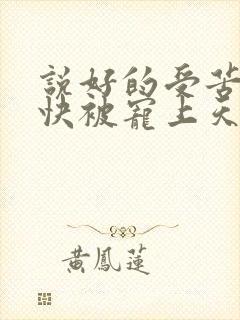 説好的受苦
快被寵上天
黃鳳蓮